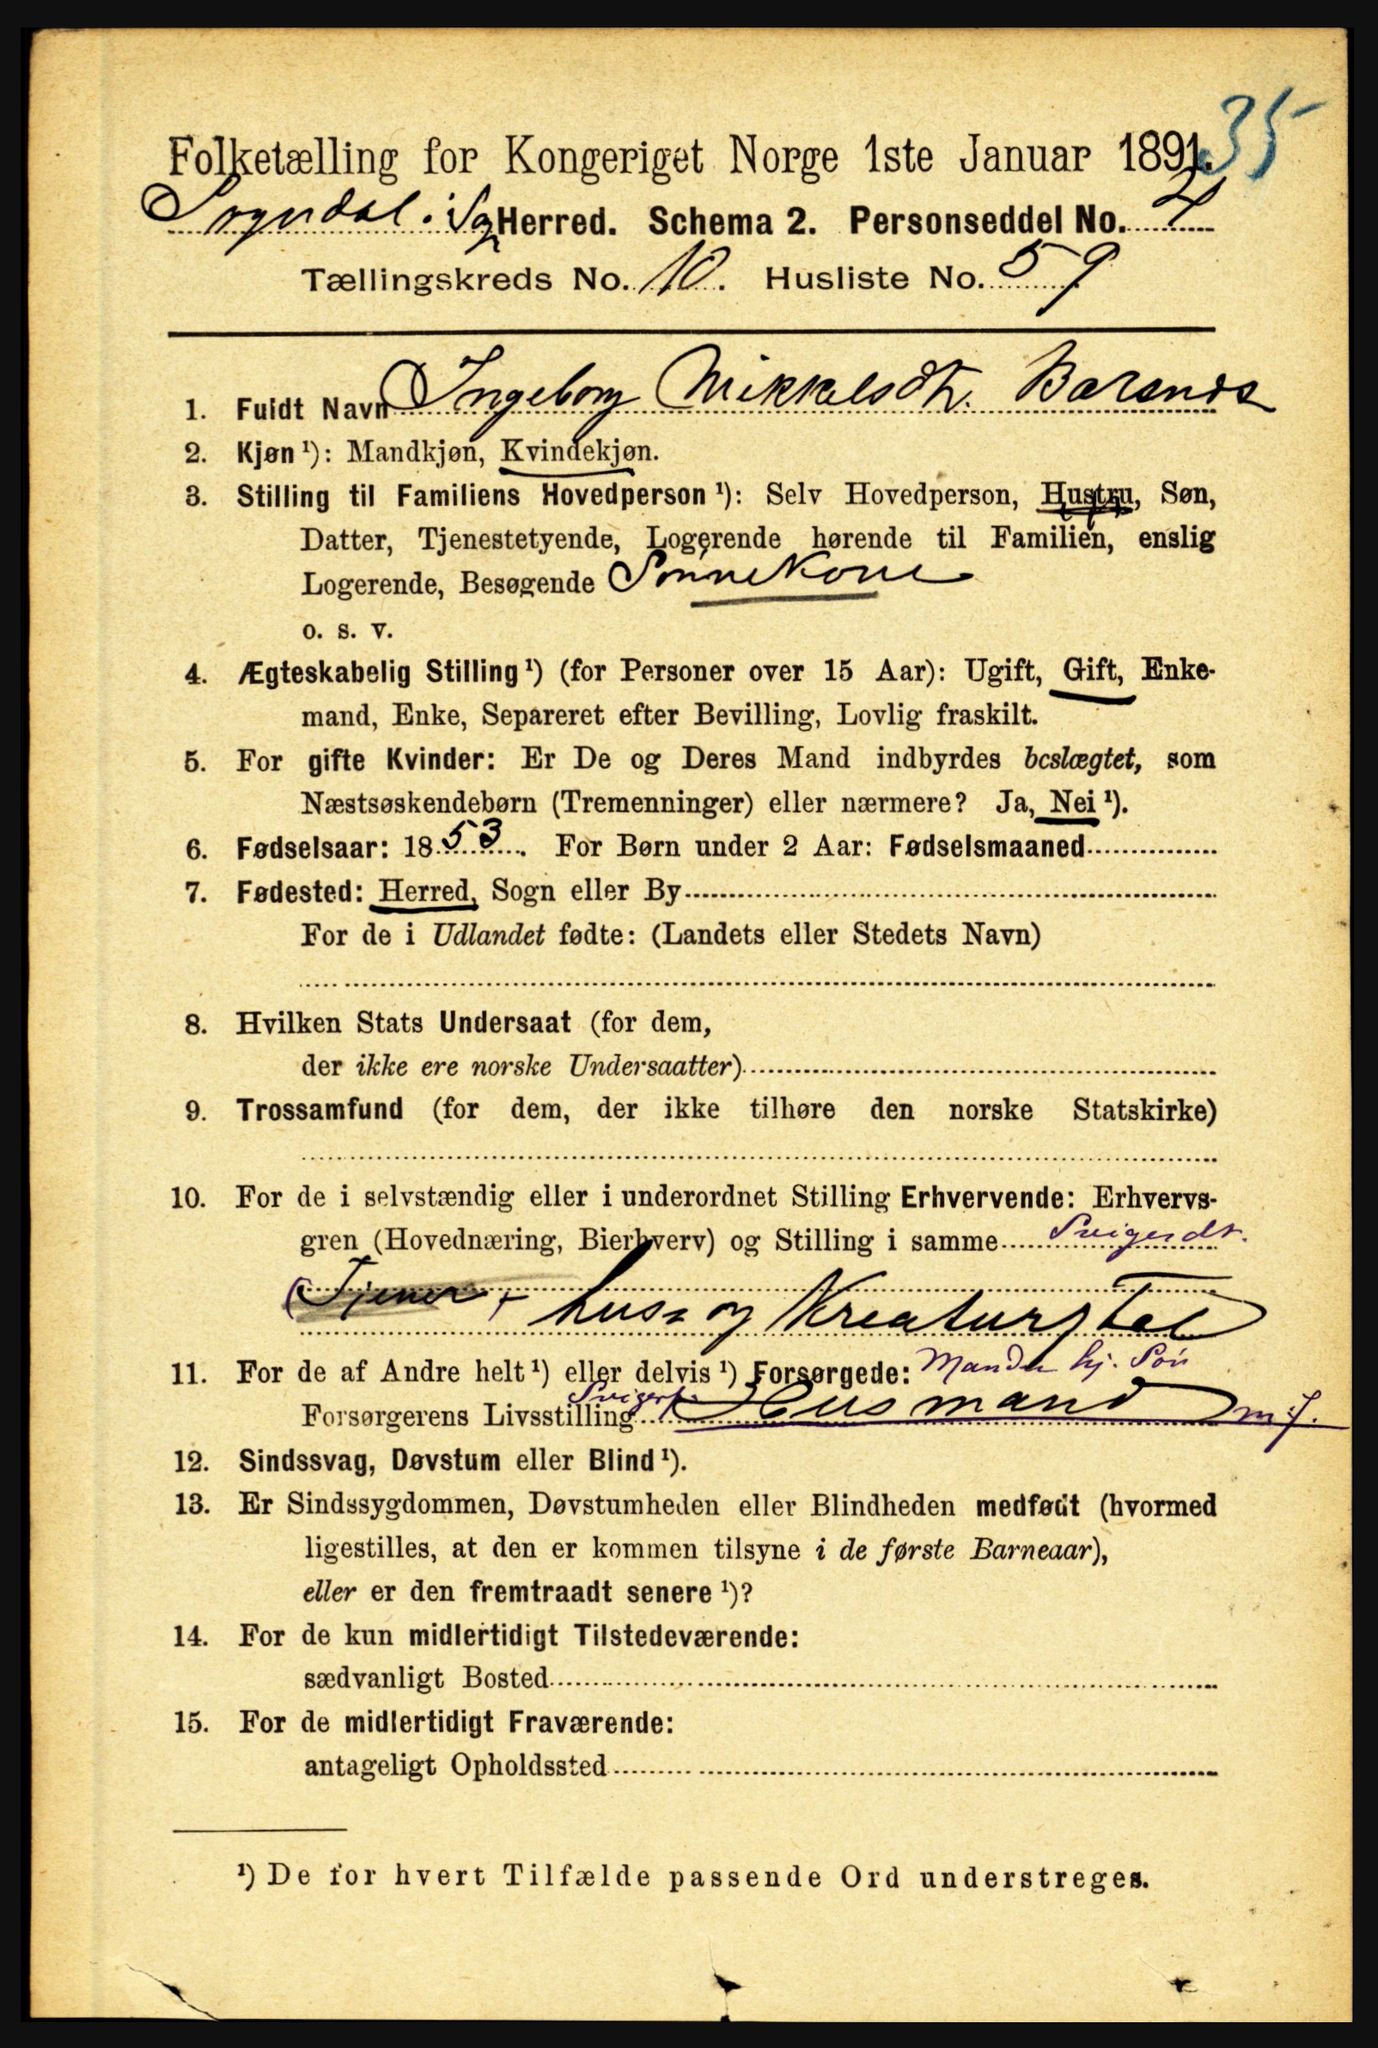 35
Folketælling for Kongeriget Norge 1ste Januar 1891.
Sogndal i Sgn Herred. Schema 2. Personseddel No. 4
Tællingskreds No. 10. Husliste No. 59
1. Fuldt Navn Ingeborg Mikkelsdtr. Barsnæs
2. Kjøn ¹): Mandkjøn, Kvindekjøn.
3. Stilling til Familiens Hovedperson ¹): Selv Hovedperson, Hustru, Søn,
Datter, Tjenestetyende, Logerende hørende til Familien, enslig
Logerende, Besøgende Sønnekone
o. s. v.
4. Ægteskabelig Stilling ¹) (for Personer over 15 Aar): Ugift, Gift, Enke-
mand, Enke, Separeret efter Bevilling, Lovlig fraskilt.
5. For gifte Kvinder: Er De og Deres Mand indbyrdes beslægtet, som
Næstsøskendebørn (Tremenninger) eller nærmere? Ja, Nei ¹).
6. Fødselsaar: 1853. For Børn under 2 Aar: Fødselsmaaned
7. Fødested: Herred, Sogn eller By
For de i Udlandet fødte: (Landets eller Stedets Navn)
8. Hvilken Stats Undersaat (for dem,
der ikke ere norske Undersaatter)
9. Trossamfund (for dem, der ikke tilhøre den norske Statskirke)
10. For de i selvstændig eller i underordnet Stilling Erhvervende: Erhvervs-
gren (Hovednæring, Bierhverv) og Stilling i samme Svigerdt.
(Tjener + hus- og Kreaturstel
11. For de af Andre helt ¹) eller delvis ¹) Forsørgede: Manden hj. Søn
Forsørgerens Livsstilling Svigerf. Husmand m. j.
12. Sindssvag, Døvstum eller Blind ¹).
13. Er Sindssygdommen, Døvstumheden eller Blindheden medfødt (hvormed
ligestilles, at den er kommen tilsyne i de første Barneaar),
eller er den fremtraadt senere ¹)?
14. For de kun midlertidigt Tilstedeværende:
sædvanligt Bosted
15. For de midlertidigt Fraværende:
antageligt Opholdssted
¹) De for hvert Tilfælde passende Ord understreges.